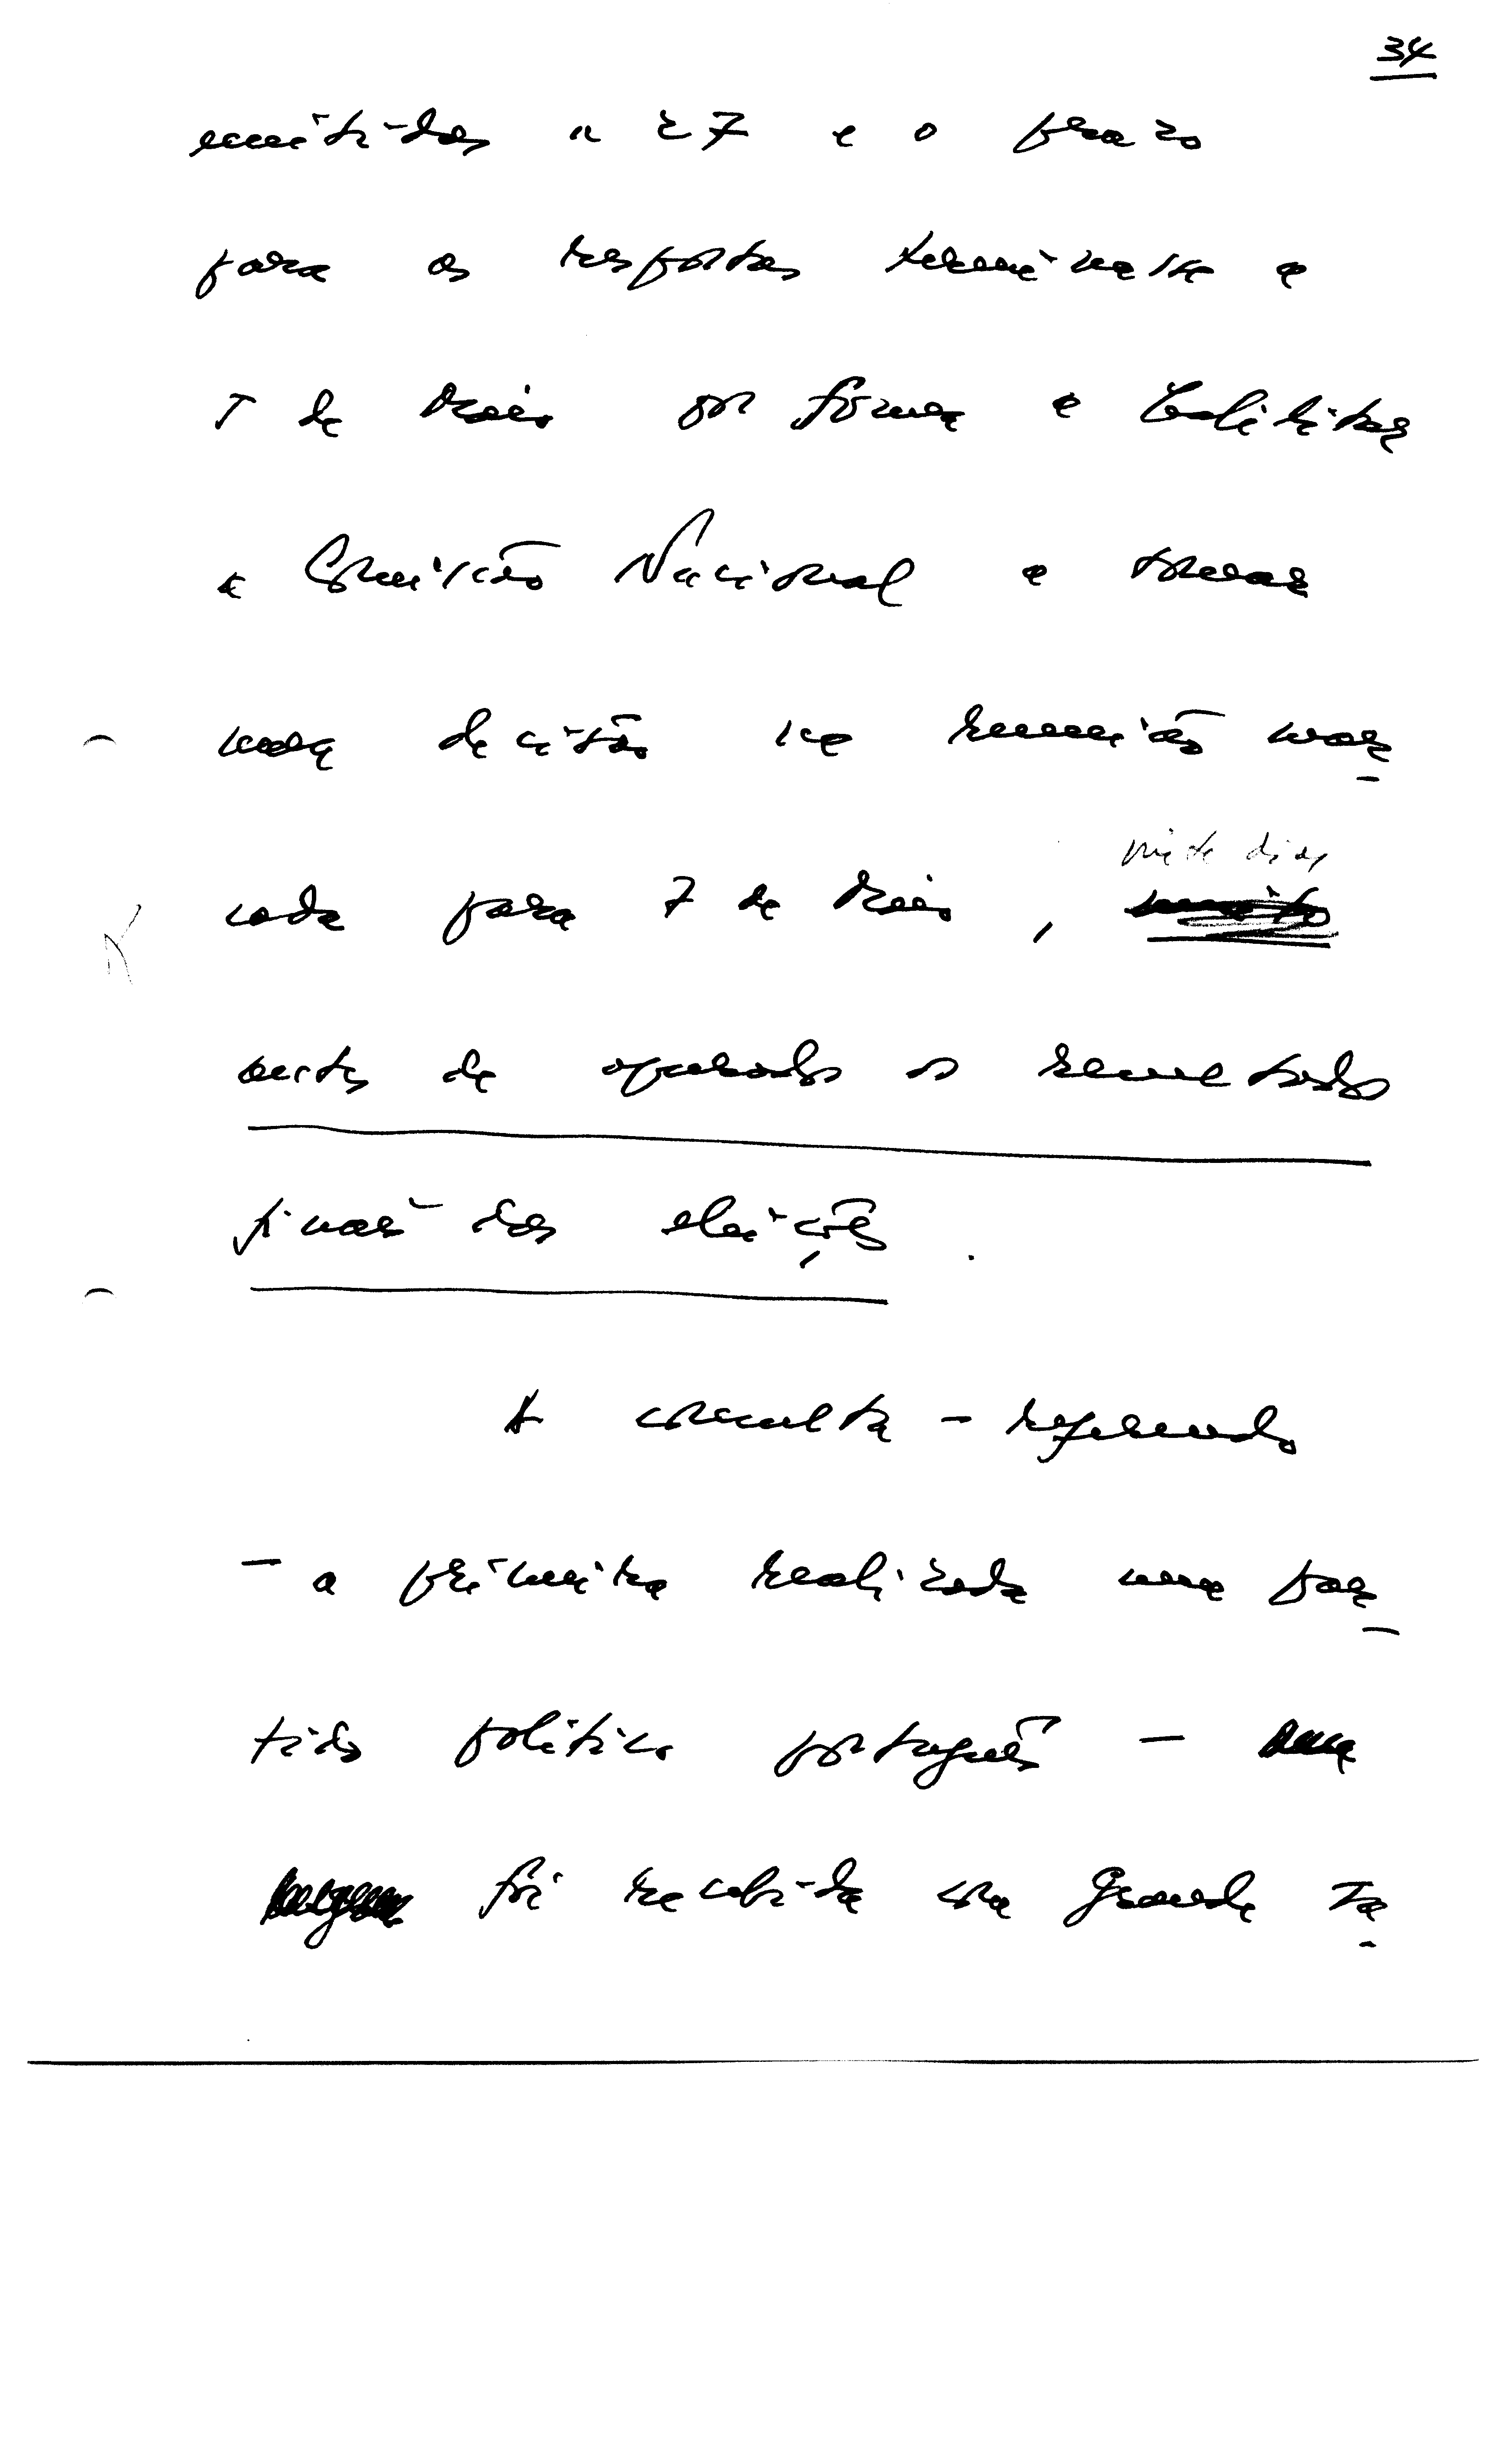 34
emitidos a 27 e o prazo
para as respostas terminasse a
5 de Maio por forma a habilitar
a Comissão Nacional a tomar
uma decisão na reunião mar-
vinte dias
cada para 7 de Maio,
antes de apurados os resultados
finais das eleições.
A consulta - referendo
- a primeira realizada num par-
tido político português -
foi recebida com grande